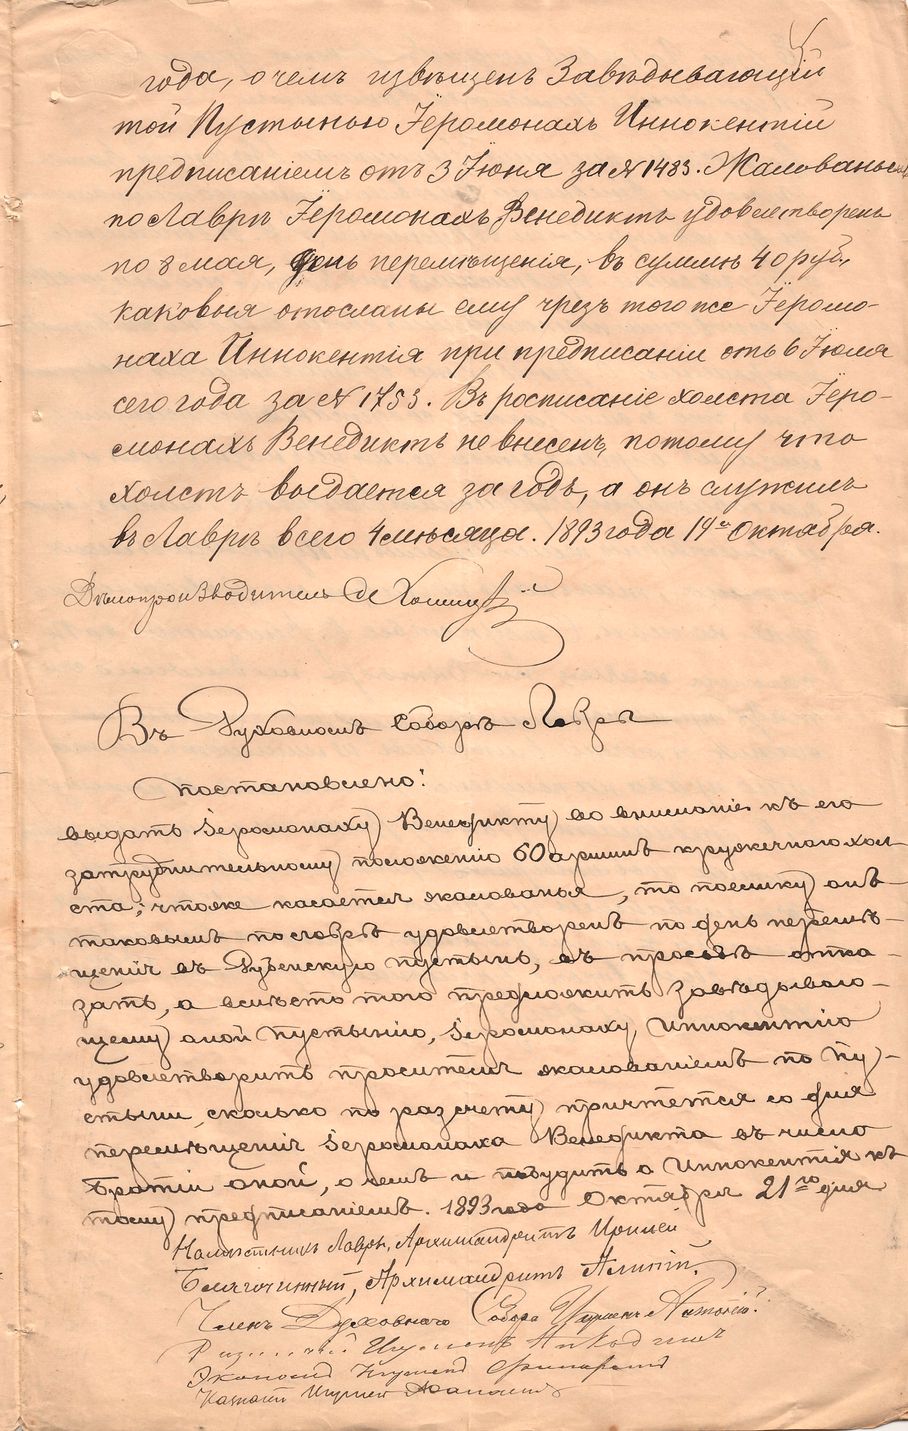 года, о чемъ извѣщенъ Завѣдывающій
той Пустынью Іеромонахъ Иннокентій
предписаніемъ отъ 3 Іюня за № 1483. Жалованьемъ
по Лаврѣ Іеромонахъ Венедиктъ удовлетворенъ
по 8 мая, день перемѣщенія, въ суммѣ 40 руб.,
каковыя отосланы ему чрезъ того же Іеромо-
наха Иннокентія при предписаніи отъ 6 Іюля
сего года за № 1753. Въ росписаніе холста Іеро-
монахъ Венедиктъ не внесенъ, потому что
холстъ выдается за годъ, а онъ служилъ
въ Лаврѣ всего 4 мѣсяца. 1893 года 19го Октября.
Дѣлопроизводитель
Въ Духовномъ Соборѣ Лавры
постановлено:
выдать Іеромонаху Венедикту во вниманіе къ его
затруднительному положенію 60 аршинъ кружечного хол-
ста; чтоже касается жалованья, то поелику онъ
таковымъ по лаврѣ удовлетворенъ по день перемѣ-
щенія въ пустынь, въ просьбѣ отка-
зать, а вмѣсто того предложить завѣдываю-
щему оной пустынію, Іеромонаху Иннокентію
удовлетворить просителя жалованіемъ по Пу-
стыни, сколько по разсчету причтется со дня
перемѣщенія Іеромонаха Венедикта въ число
братіи оной, о чемъ и побудить о Иннокентія къ
тому предписаніемъ. 1893 года Октября 21го дня
Намѣстникъ Лавры, Архимандритъ Ириней
Благочинный, Архимандритъ Алипій.
Членъ Духовнаго Собора Игуменъ Антоній.
Игуменъ
Экономъ Игуменъ
Игуменъ